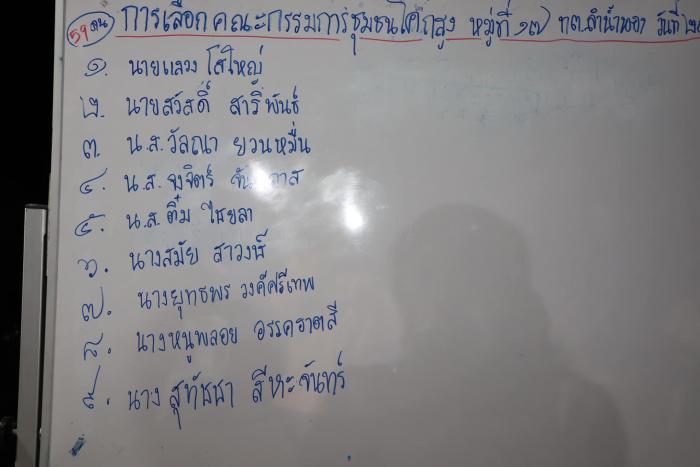 59 คน การเลือกคณะกรรมการชุมชนโคกสูง หมู่ที่ ๑๗ ทต.ลำน้ำพอง วันที่
๑. นายแสวง โสใหญ่
๒. นายสวัสดิ์ สารีพันธ์
๓. น.ส.วัลณา ยวนหมื่น
๔. น.ส.จงจิตร์
๕. น.ส.ติ๋ม ไชยลา
๖. นางสมัย สาวงษ์
๗. นางยุทธพร วงศ์ศรีเทพ
๘. นางหนูพลอย อรรคฮาตสี
๙. นาง สุทัชชา สีหะจันทร์